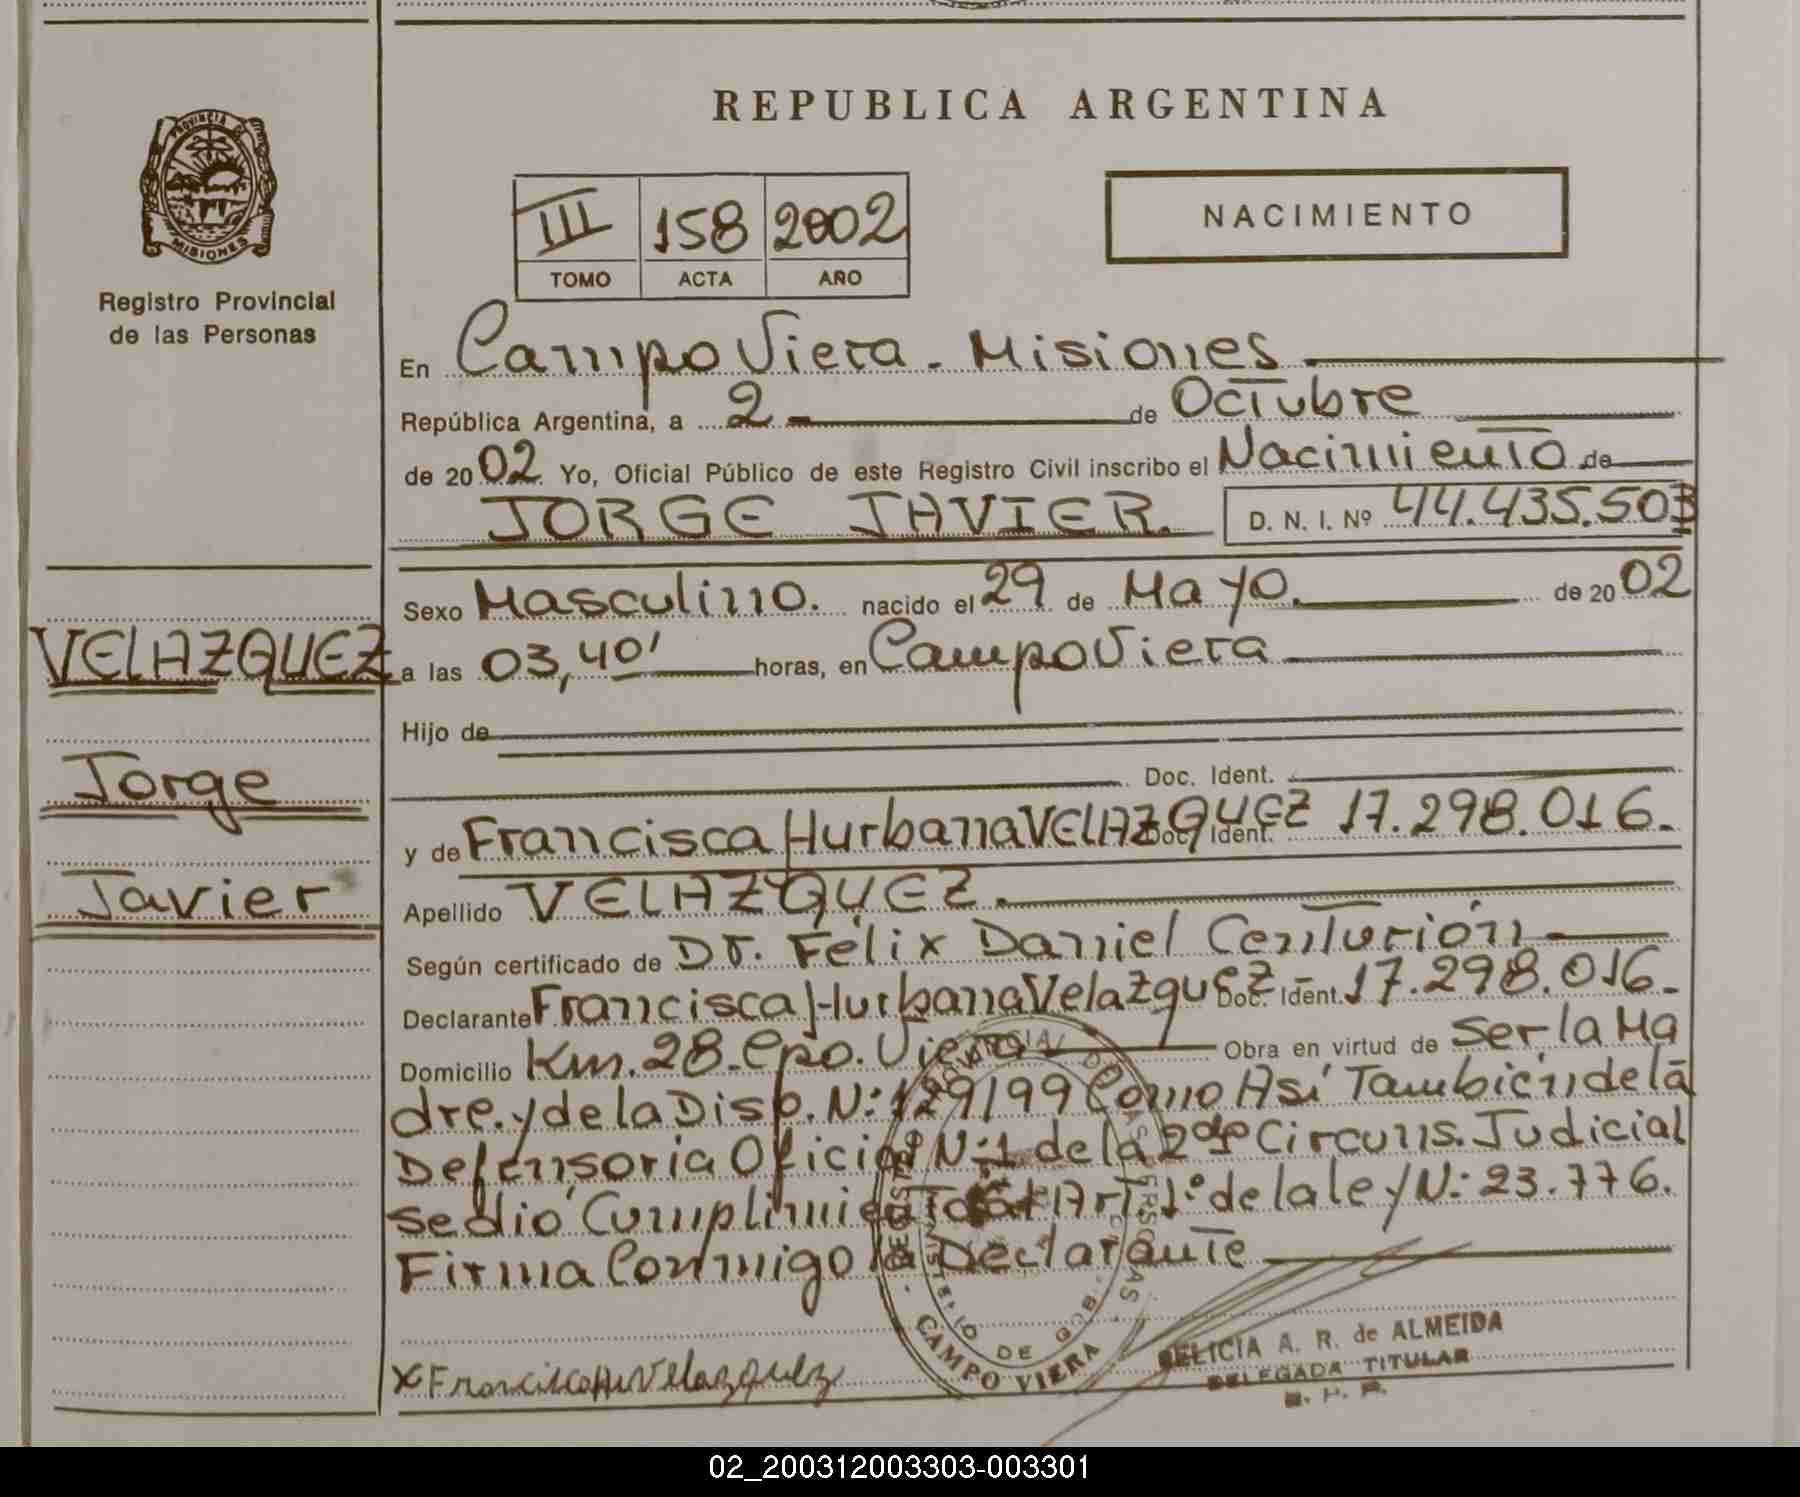 REPUBLICA ARGENTINA
PROVINCIA DE
MISIONES
Registro Provincial
de las Personas
III 158 2002
TOMO ACTA AÑO
NACIMIENTO
En Campo Viera - Misiones
República Argentina, a 2 de Octubre
de 2002 Yo, Oficial Público de este Registro Civil inscribo el Nacimiento de
JORGE JAVIER. D. N. I. Nº 44.435.503
Sexo Masculino. nacido el 29 de Mayo. de 2002
VELAZQUEZ
a las 03,40' horas, en Campo Viera
Hijo de
Jorge
Doc. Ident.
y de Francisca Hurbana VELAZQUEZ Doc. Ident. 17.298.016.
Javier
Apellido VELAZQUEZ.
Según certificado de Dr. Félix Daniel Centurión
Declarante Francisca Hurbana Velazquez - Doc. Ident. 17.298.016.
Domicilio Km. 28. Cpo. Viera Obra en virtud de Ser la Ma
dre. y de la Disp. N: 129/99 Como Así También de la
Defensoria Oficial N:1 de la 2da Circuns. Judicial
se dio Cumplimiento al Art. 1º de la ley N: 23.776.
Firma Conmigo la Declarante
CAMPO VIERA
MINISTERIO DE GOB.
x Francisca H Velazquez
FELICIA A. R. de ALMEIDA
DELEGADA TITULAR
02_200312003303-003301